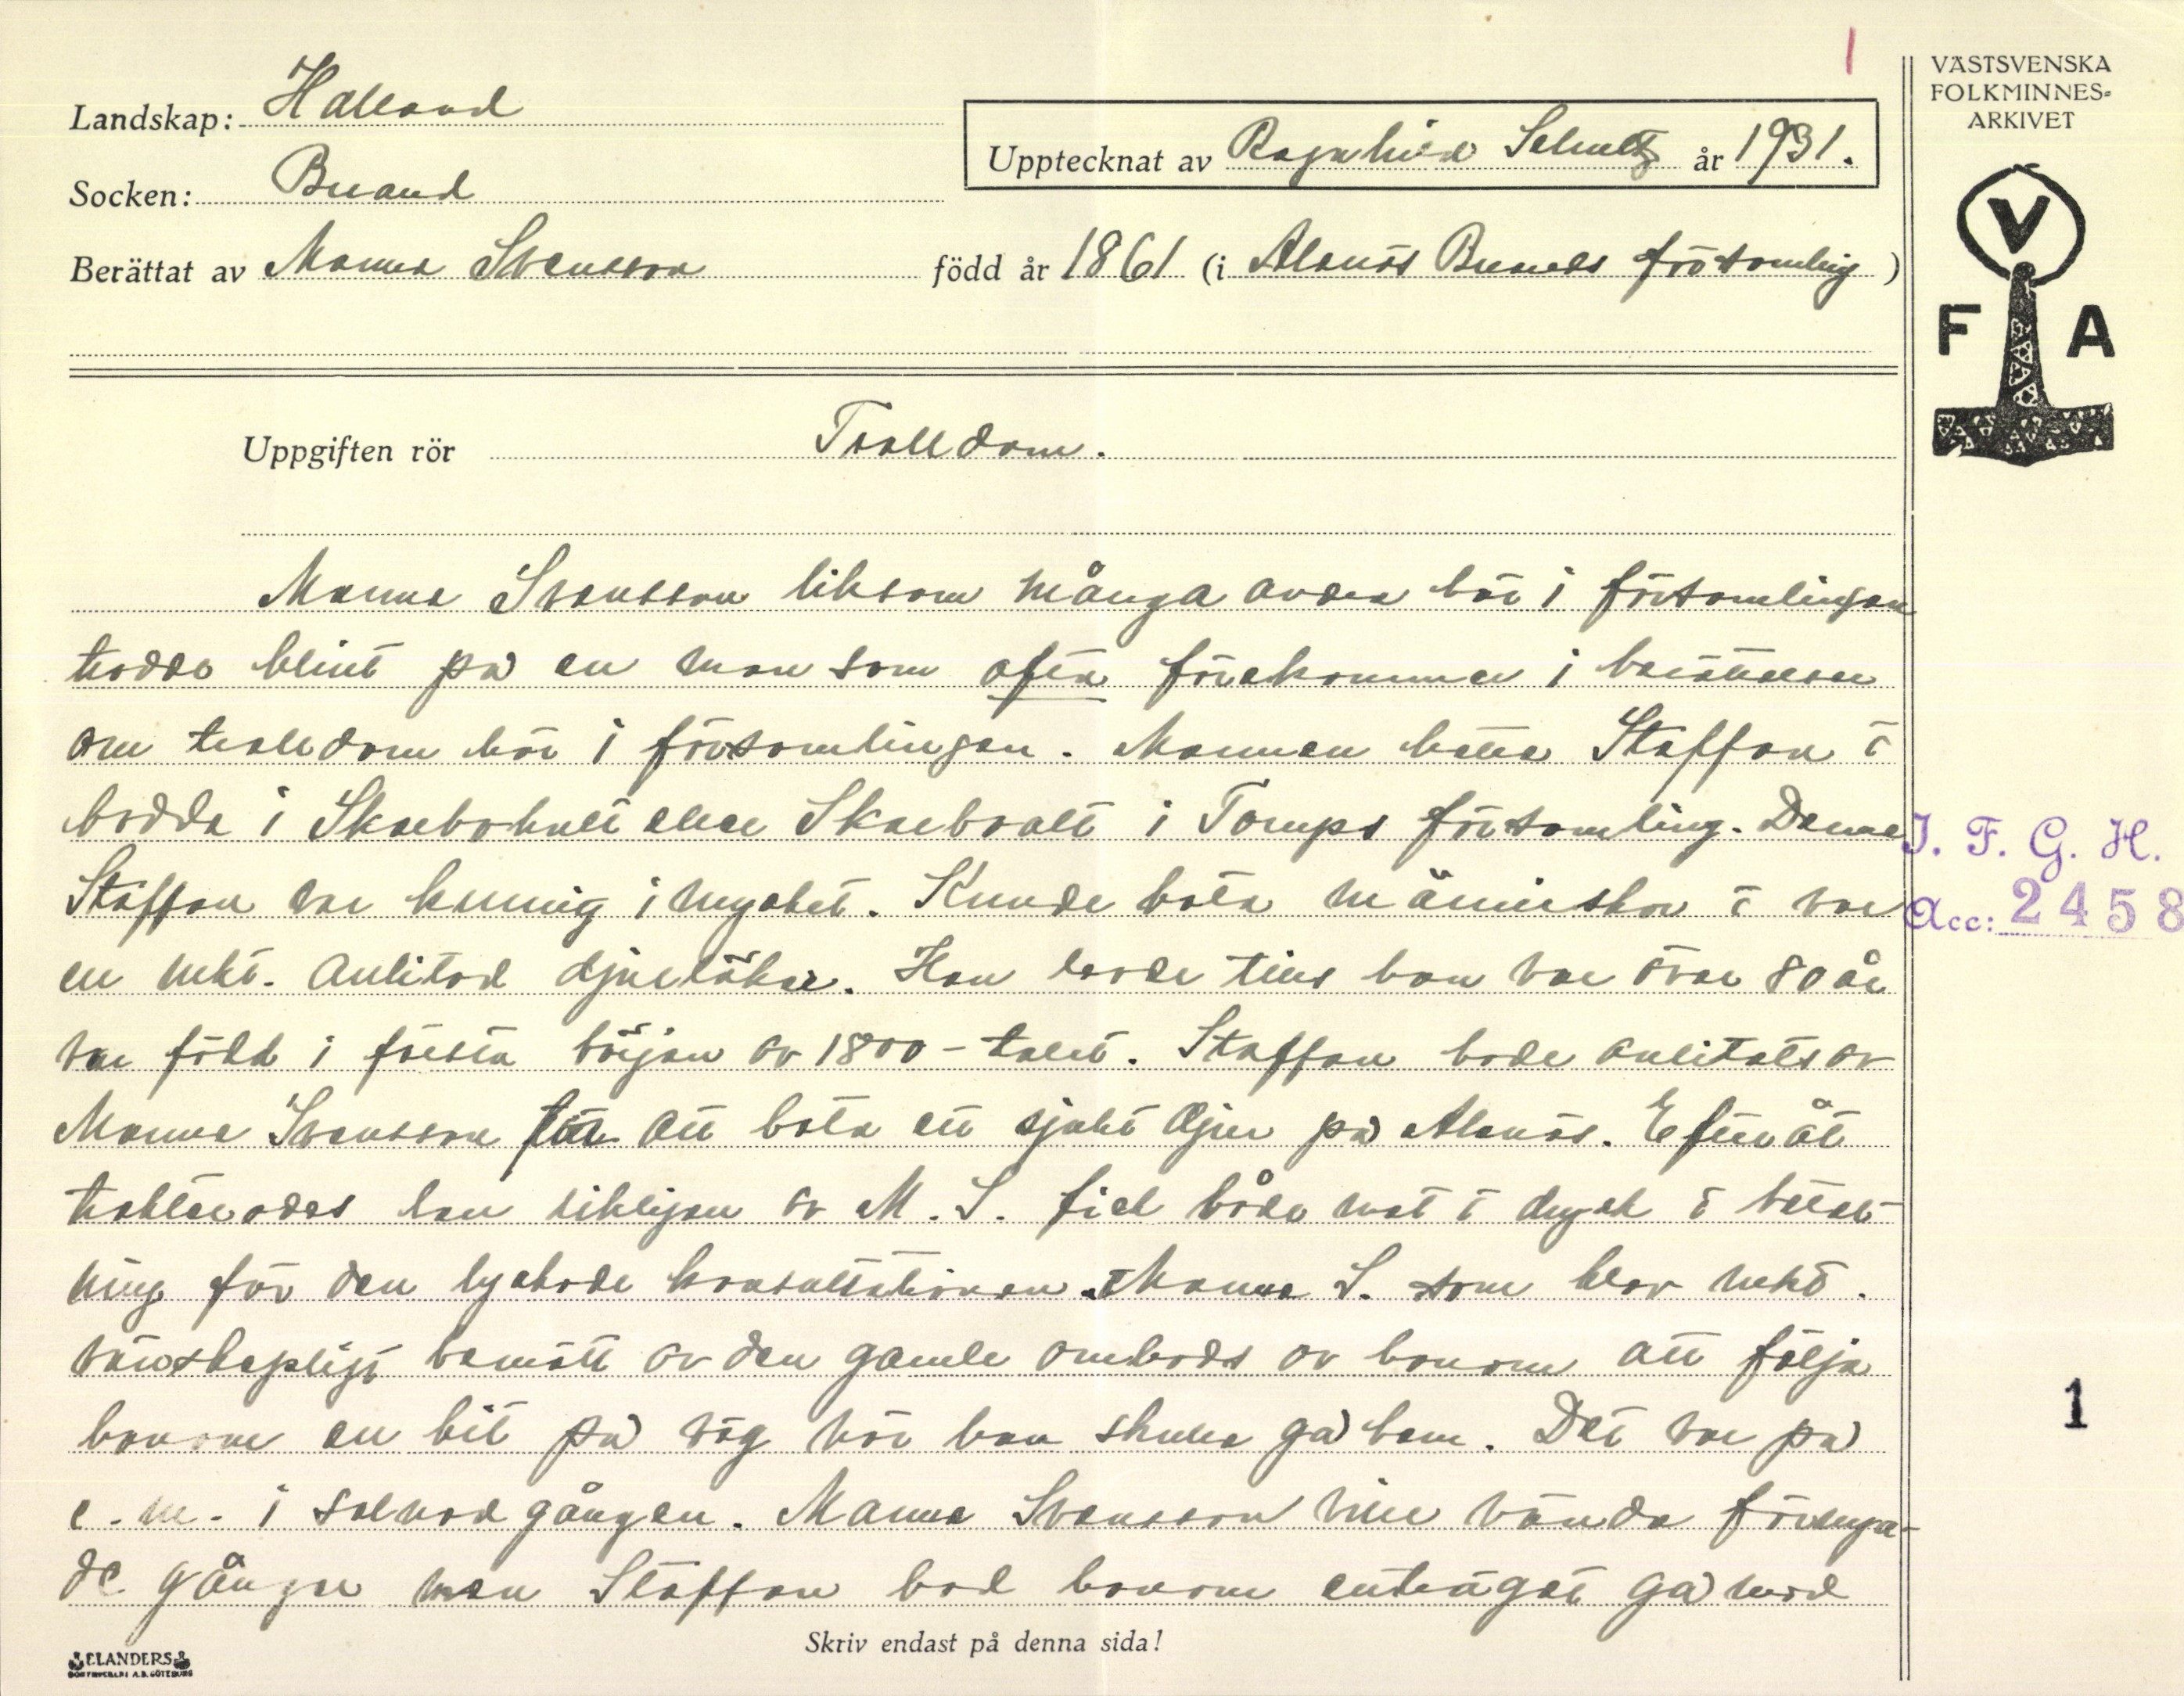 1
VÄSTSVENSKA
FOLKMINNES-
ARKIVET
V
F A
Landskap: Halland
Upptecknat av Ragnhild Schultz år 1931.
Socken:
Berättat av Manne Svensson född år 1861 (i Alanäs församling)
Uppgiften rör Trolldom.
Manne Svensson liksom många andra här i församlingen
trodde blint på en man som ofta förekommer i berättelser
om trolldom här i församlingen. Mannen hette Staffan o
bodde i eller i församling. Denne
Staffan var kunnig i mycket. Kunde bota människor o var
en mkt. anlitad djurläkare. Han levde tills han var över 80 år
var född i första början av 1800-talet. Staffan hade anlitats av
Manne Svensson för att bota ett sjukt djur på Alanäs. Efteråt
trakterades han rikligen av M. S. fick både mat o dryck o betal-
ning för den lyckade konsultationen. Manne S. som blev mkt.
vänskapligt bemött av den gamle ombads av honom att följa
honom en bit på väg när han skulle gå hem. Det var på
e.m. i solnedgången. Manne Svensson ville vända
de gånger men Staffan bad honom enträget gå med
Skriv endast på denna sida!
ELANDERS
BOKTRYCKERI A.B. GÖTEBORG
I. F. G. H.
Acc: 2458
1